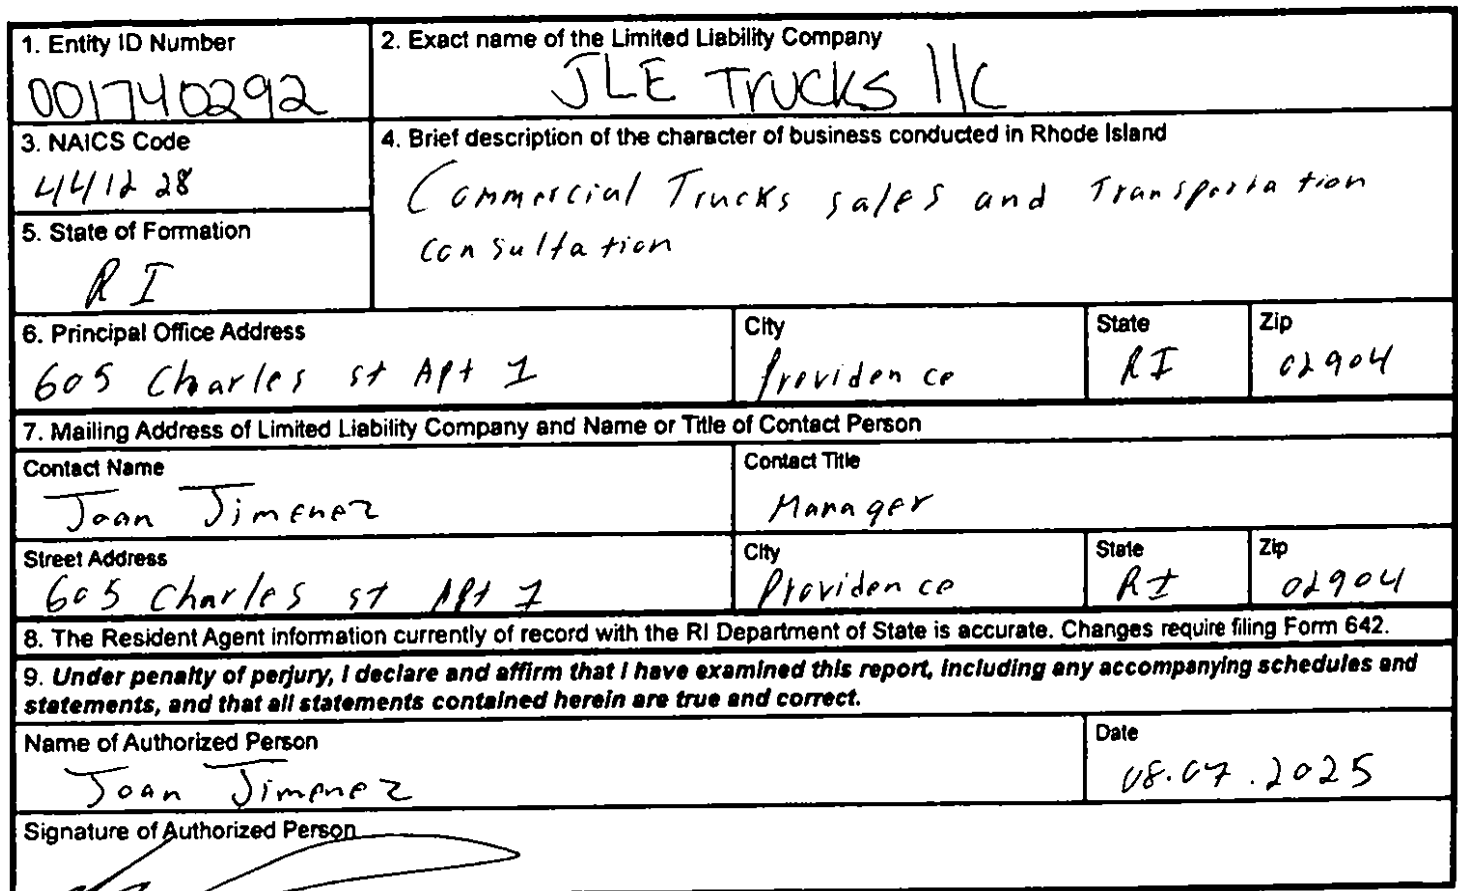 1. Entity ID Number
001740292
2. Exact name of the Limited Liability Company
JLE Trucks llc
3. NAICS Code
441228
4. Brief description of the character of business conducted in Rhode Island
Commercial Trucks sales and Transportation
consultation
5. State of Formation
RI
6. Principal Office Address
605 Charles st Apt 1
City
Providence
State
RI
Zip
02904
7. Mailing Address of Limited Liability Company and Name or Title of Contact Person
Contact Name
Joan Jimenez
Contact Title
Manager
Street Address
605 Charles st Apt 1
City
Providence
State
RI
Zip
02904
8. The Resident Agent information currently of record with the RI Department of State is accurate. Changes require filing Form 642.
9. Under penalty of perjury, I declare and affirm that I have examined this report, including any accompanying schedules and
statements, and that all statements contained herein are true and correct.
Name of Authorized Person
Joan Jimenez
Date
08.07.2025
Signature of Authorized Person